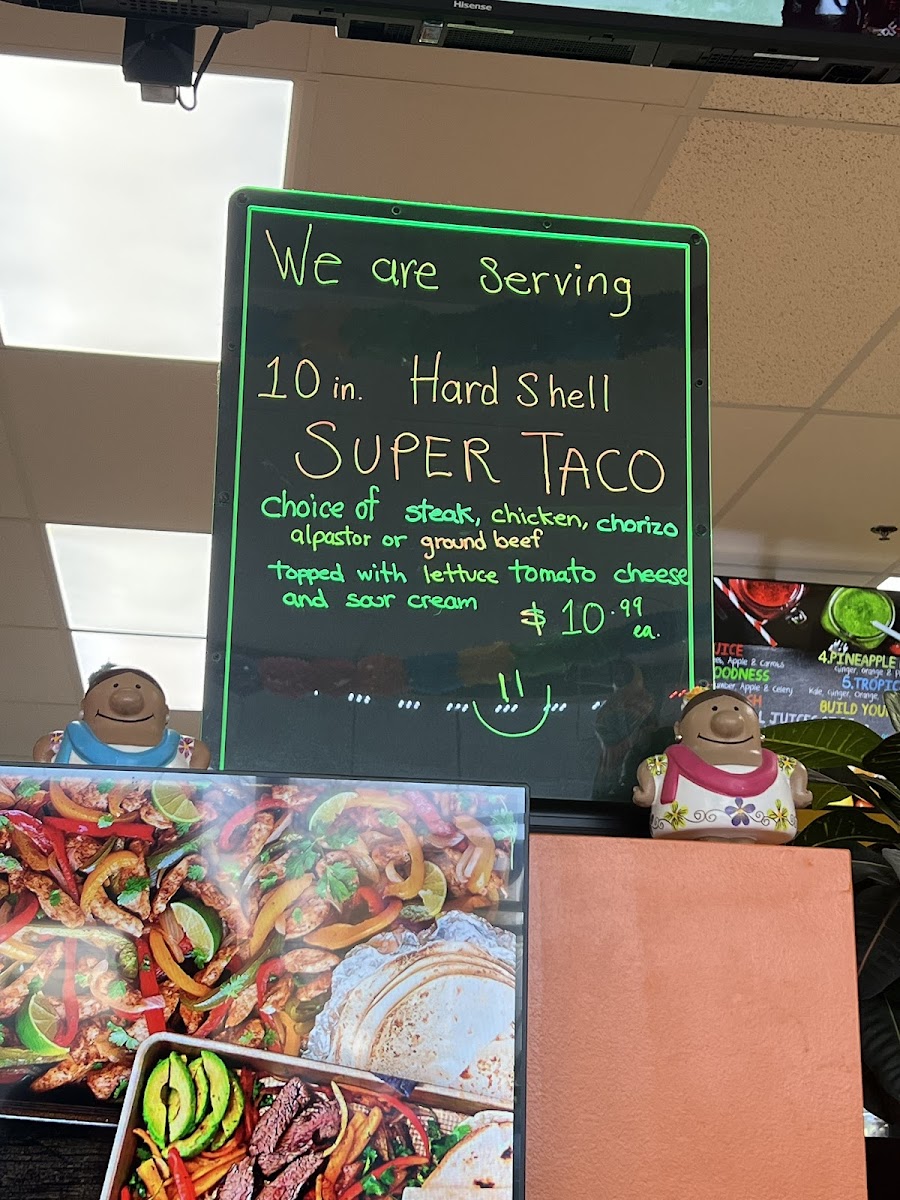 Hisense
We are Serving
10 in. Hard Shell
SUPER TACO
choice of steak, chicken, chorizo
alpastor or ground beef
topped with lettuce tomato cheese
and sour cream
$10.99
ea.
Apple & Carrots
Apple & Celery
4.PINEAPPLE
Ginger, Orange &
5.TROPIC
Kale, Ginger, Orange,
BUILD YOU